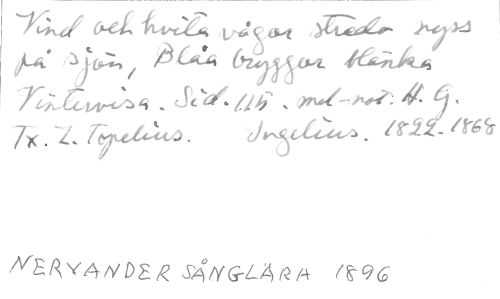 Vind och hvita vågor streda nyss
på sjön, Blåa bryggor blänka
Vintervisa. Sid. 115. mel-not: H. G.
Tx. Z. Topelius. Ingelius. 1822-1868
NERVANDER SÅNGLÄRA 1896